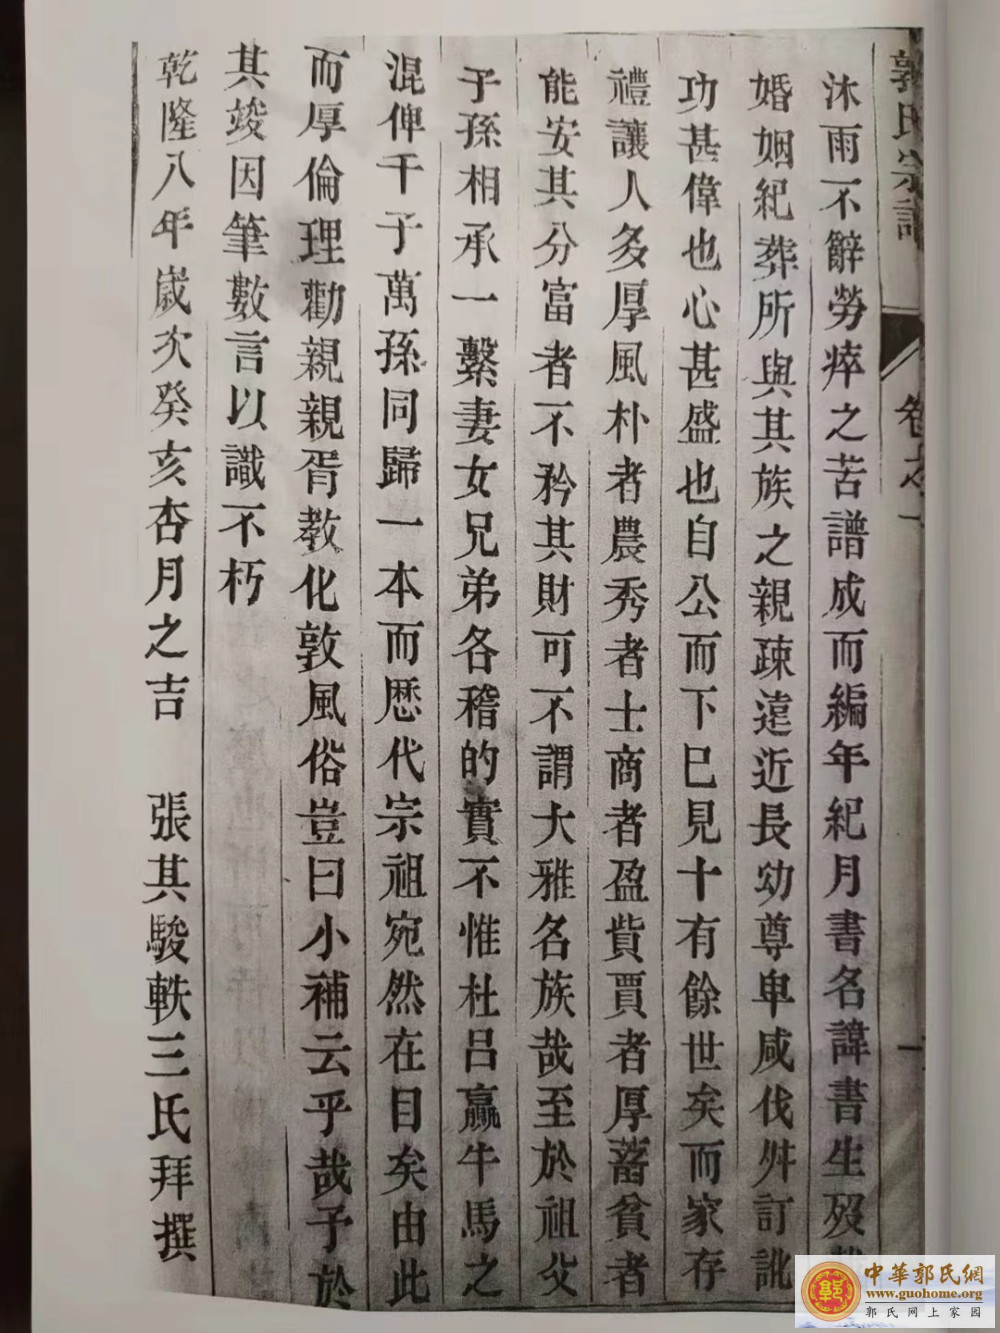 郭氏宗譜
卷之一
沐雨不辭勞瘁之苦譜成而編年紀月書名諱書生歿
婚姻紀葬所與其族之親疎遠近長幼尊卑咸伐舛訂訛
功甚偉也心甚盛也自公而下巳見十有餘世矣而家存
禮讓人多厚風朴者農秀者士商者盈貲賈者厚蓄貧者
能安其分富者不矜其財可不謂大雅名族哉至於祖父
子孫相承一繫妻女兄弟各稽的實不惟杜呂嬴牛馬之
混俾千子萬孫同歸一本而歷代宗祖宛然在目矣由此
而厚倫理勸親親胥教化敦風俗豈曰小補云乎哉予於
其竣因筆數言以識不朽
乾隆八年嵗次癸亥杏月之吉 張其駿軼三氏拜撰
郭
中華郭氏網
www.guohome.org
郭氏网上家园